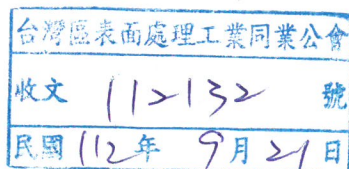 台灣區表面處理工業同業公會
收文 112132 號
民國 112 年 9 月 21 日